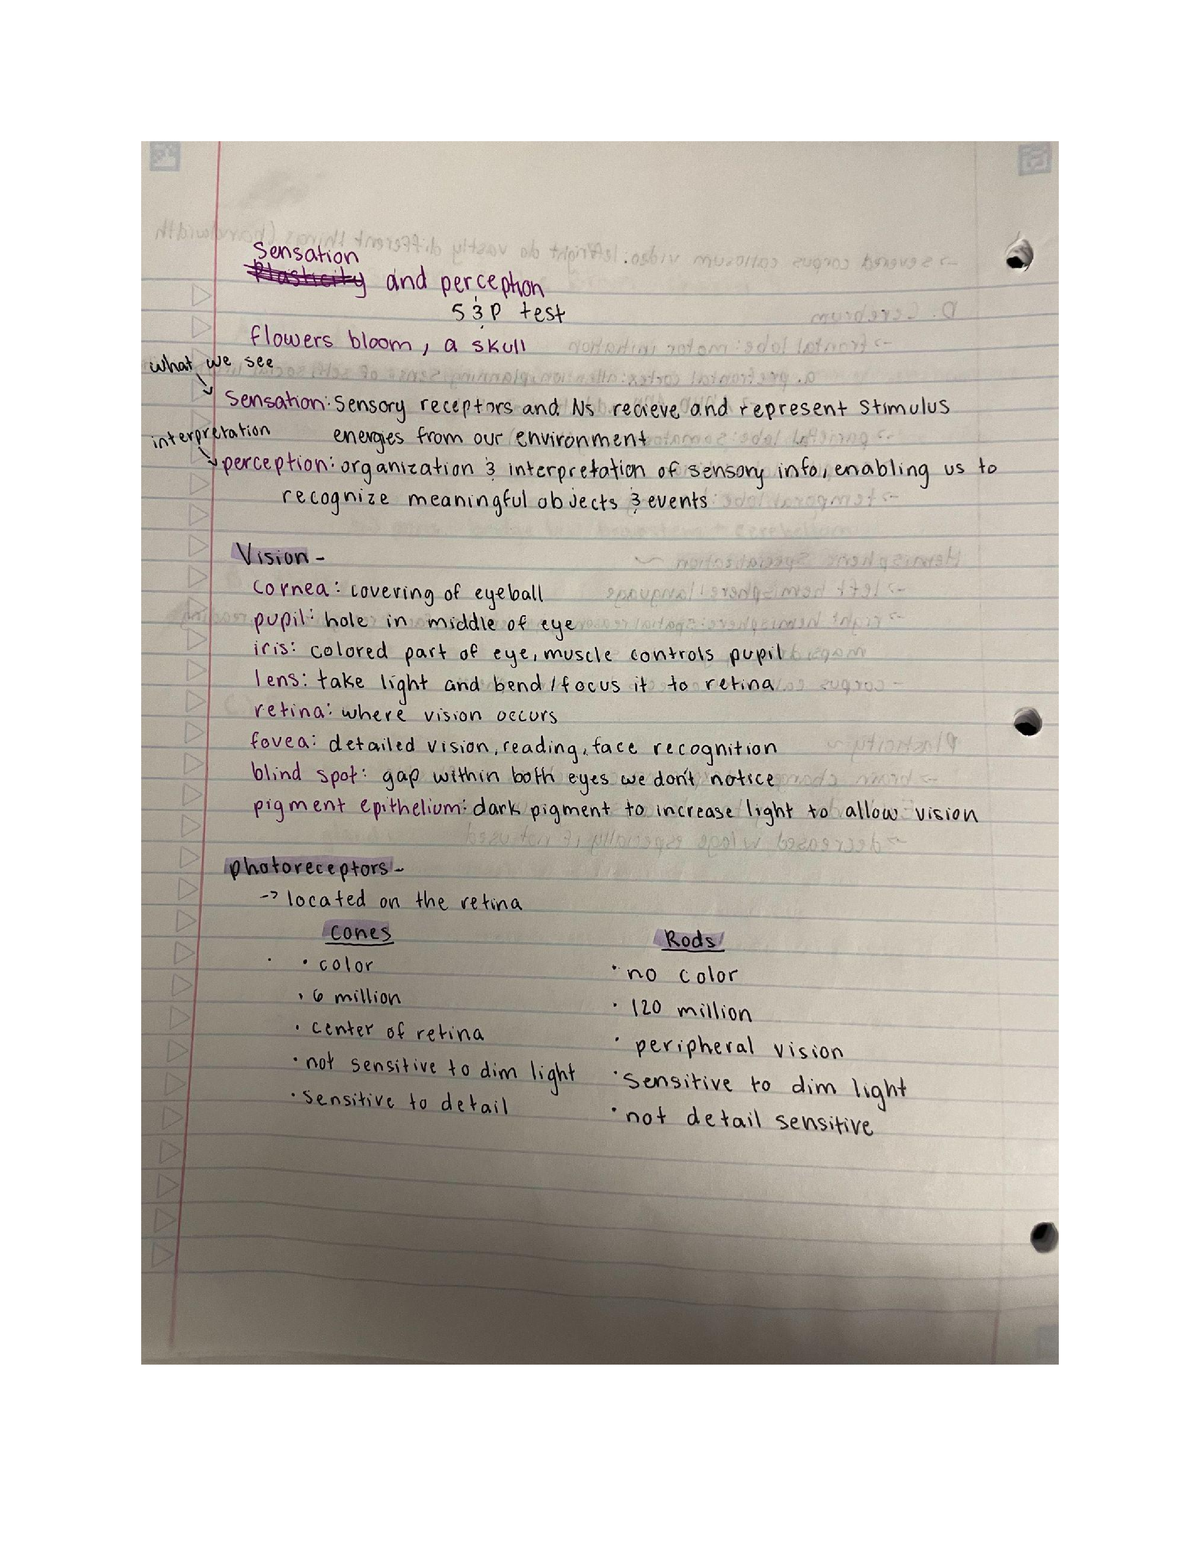 Sensation
Plasticity and perception
S & P test
flowers bloom, a skull
what we see
Sensation: Sensory receptors and Ns recieve and represent stimulus
interpretation
energies from our environment
perception: organization & interpretation of sensory info, enabling us to
recognize meaningful objects & events
Vision -
cornea: covering of eyeball
pupil: hole in middle of eye
iris: colored part of eye, muscle controls pupil
lens: take light and bend/focus it to retina
retina: where vision occurs
fovea: detailed vision, reading, face recognition
blind spot: gap within both eyes we don't notice
pigment epithelium: dark pigment to increase light to allow vision
photoreceptors -
-> located on the retina
cones
Rods
• color
• no color
• 6 million
• 120 million
• center of retina
• peripheral vision
• not sensitive to dim light
• sensitive to dim light
• sensitive to detail
• not detail sensitive